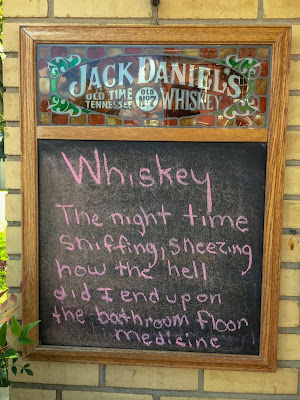 JACK DANIEL'S
OLD TIME OLD No7 WHISKEY
TENNESSEE
Whiskey
The night time
sniffing, sneezing
how the hell
did I end up on
the bathroom floor
medicine